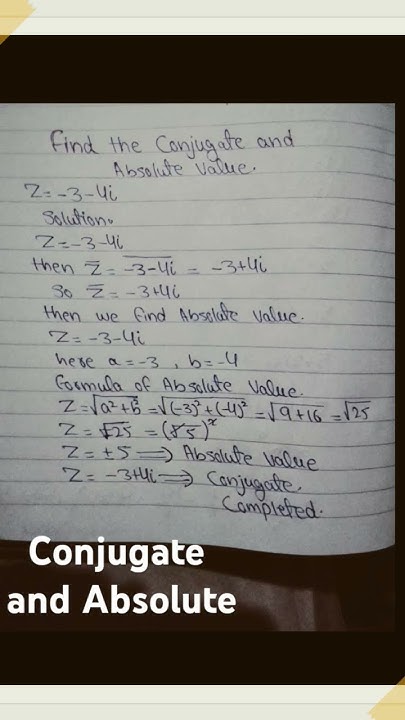 Find the Conjugate and
Absolute Value.
Z = -3-4i
Solution.
Z = -3-4i
then Z̅ = \overline{-3-4i} = -3+4i
So Z̅ = -3+4i
then we find Absolute Value.
Z = -3-4i
here a = -3 , b = -4
formula of Absolute Value.
Z = √a²+b² = √(-3)²+(-4)² = √9+16 = √25
Z = √25 =
Z = +5 ⟹ Absolute Value
Z = -3+4i ⟹ Conjugate.
Completed.
Conjugate
and Absolute